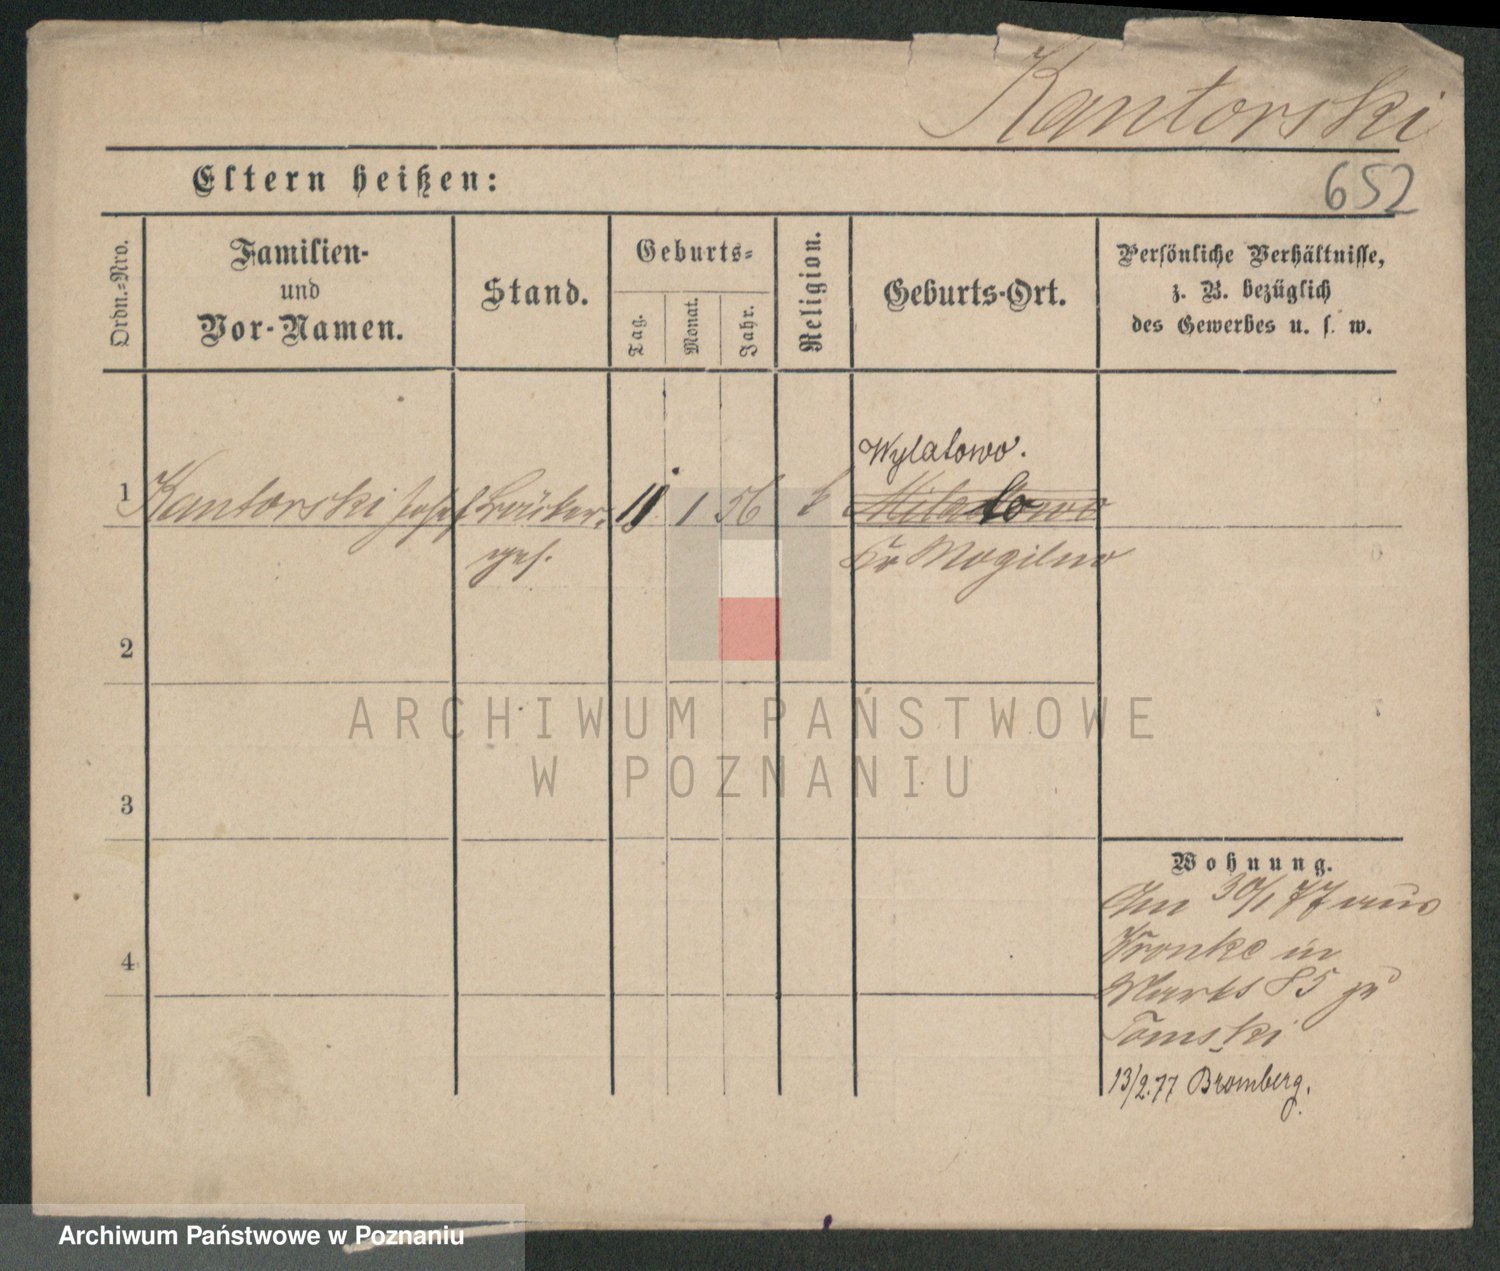 Kantorski
Eltern heißen:
652
Ordn.-Nro.
Familien-
und
Vor-Namen.
Stand.
Geburts-
Tag.
Monat.
Jahr.
Religion.
Geburts-Ort.
Persönliche Verhältnisse,
z. B. bezüglich
des Gewerbes u. s. w.
Wylatowo.
1 Kantorski Josef Bäcker- 11 1 56 k
ges.
Kr Mogilno
2
ARCHIWUM PAŃSTWOWE
W POZNANIU
3
Wohnung.
Am 30/1 77 aus
Wronke in
Markt 85 zu
Tomski
4
13/2.77 Bromberg.
Archiwum Państwowe w Poznaniu